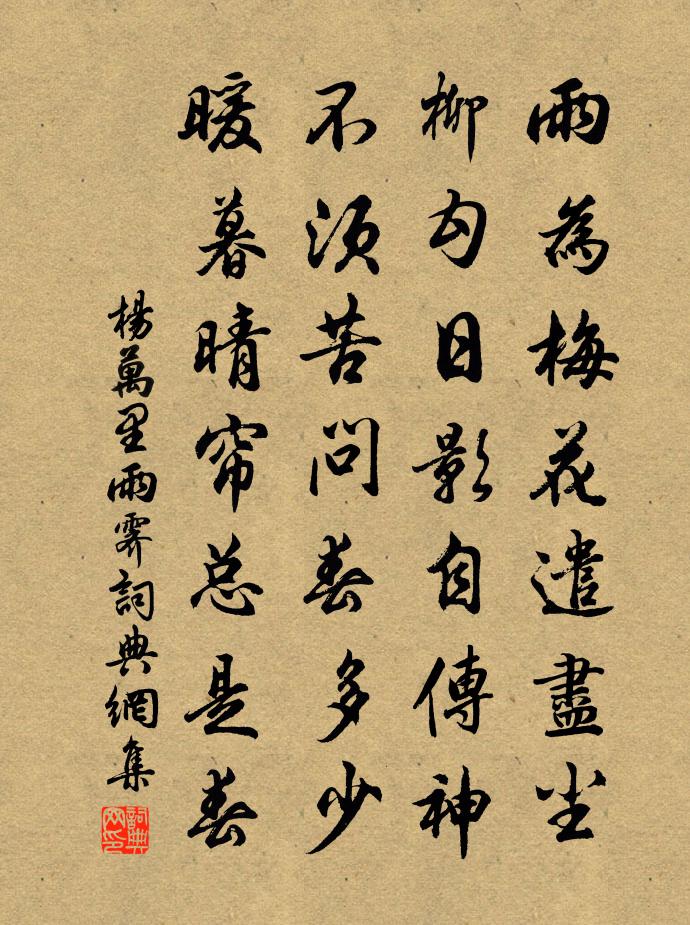 雨為梅花遣盡尘
柳勾日影自傳神
不須苦問春多少
暖暮晴帘总是春
楊萬里雨霽詞典網集
詞典网印